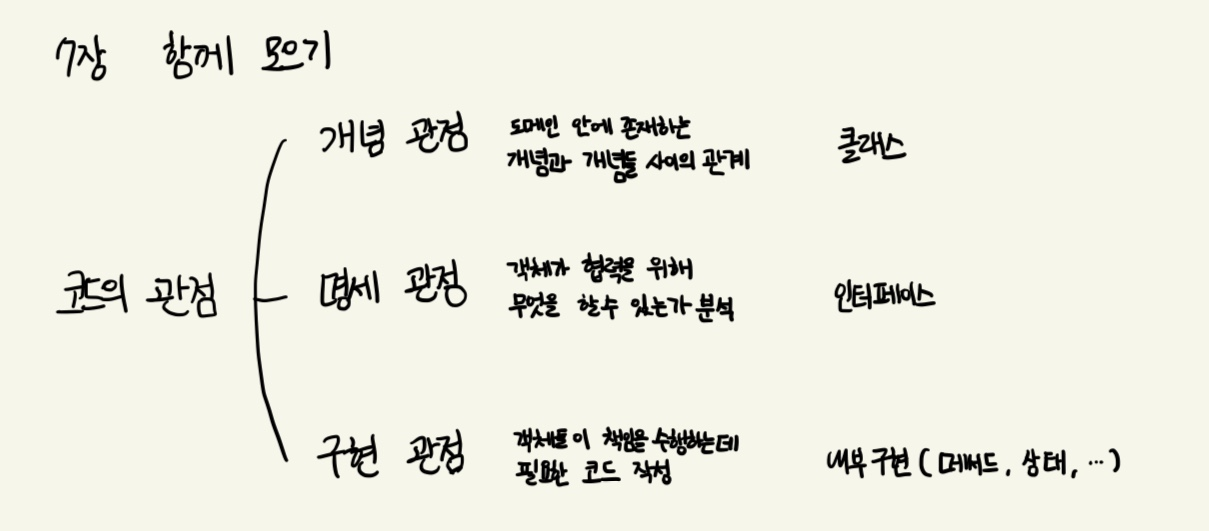 7장 함께 모으기
개념 관점
도메인 안에 존재하는
개념과 개념들 사이의 관계
클래스
코드의 관점
명세 관점
객체가 협력을 위해
무엇을 할 수 있는가 분석
인터페이스
구현 관점
객체들이 책임을 수행하는데
필요한 코드 작성
내부 구현 ( 메써드, 상태, … )